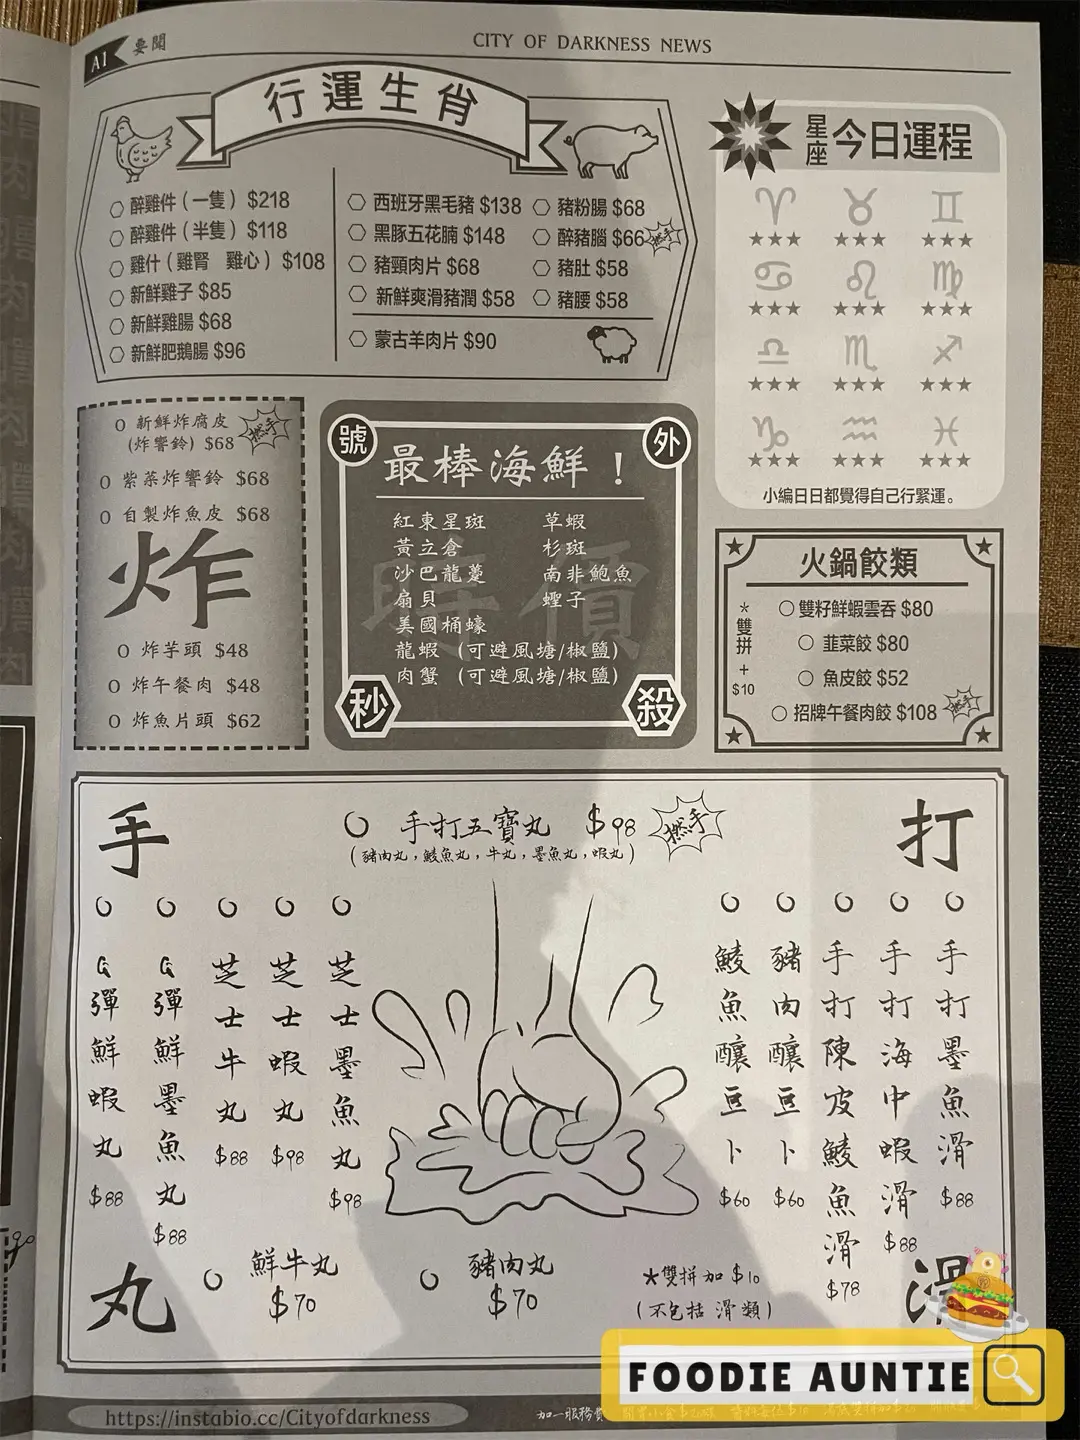 A1 要聞
CITY OF DARKNESS NEWS
行運生肖
醉雞件（一隻） $218
醉雞件（半隻） $118
雞什（雞腎 雞心） $108
新鮮雞子 $85
新鮮雞腸 $68
新鮮肥鵝腸 $96
西班牙黑毛豬 $138
黑豚五花腩 $148
豬頸肉片 $68
新鮮爽滑豬潤 $58
豬粉腸 $68
醉豬腦 $66
撚手
豬肚 $58
豬腰 $58
蒙古羊肉片 $90
星座 今日運程
小編日日都覺得自己行緊運。
新鮮炸腐皮
(炸響鈴) $68
撚手
紫菜炸響鈴 $68
自製炸魚皮 $68
炸
炸芋頭 $48
炸午餐肉 $48
炸魚片頭 $62
號外
最棒海鮮！
時價
紅東星斑
黃立倉
沙巴龍躉
扇貝
美國桶蠔
草蝦
杉斑
南非鮑魚
蟶子
龍蝦（可避風塘/椒鹽）
肉蟹（可避風塘/椒鹽）
秒殺
火鍋餃類
*雙拼+$10
雙籽鮮蝦雲吞 $80
韮菜餃 $80
魚皮餃 $52
招牌午餐肉餃 $108
撚手
手打
手打五寶丸 $98
(豬肉丸，鯪魚丸，牛丸，墨魚丸，蝦丸)
撚手
Q彈鮮蝦丸 $88
Q彈鮮墨魚丸 $88
芝士牛丸 $88
芝士蝦丸 $98
芝士墨魚丸 $98
鯪魚釀豆卜 $60
豬肉釀豆卜 $60
手打陳皮鯪魚滑 $78
手打海中蝦滑 $88
手打墨魚滑 $88
丸滑
鮮牛丸 $70
豬肉丸 $70
*雙拼加$10
(不包括 滑類)
FOODIE AUNTIE
https://instabio.cc/Cityofdarkness
加一服務費